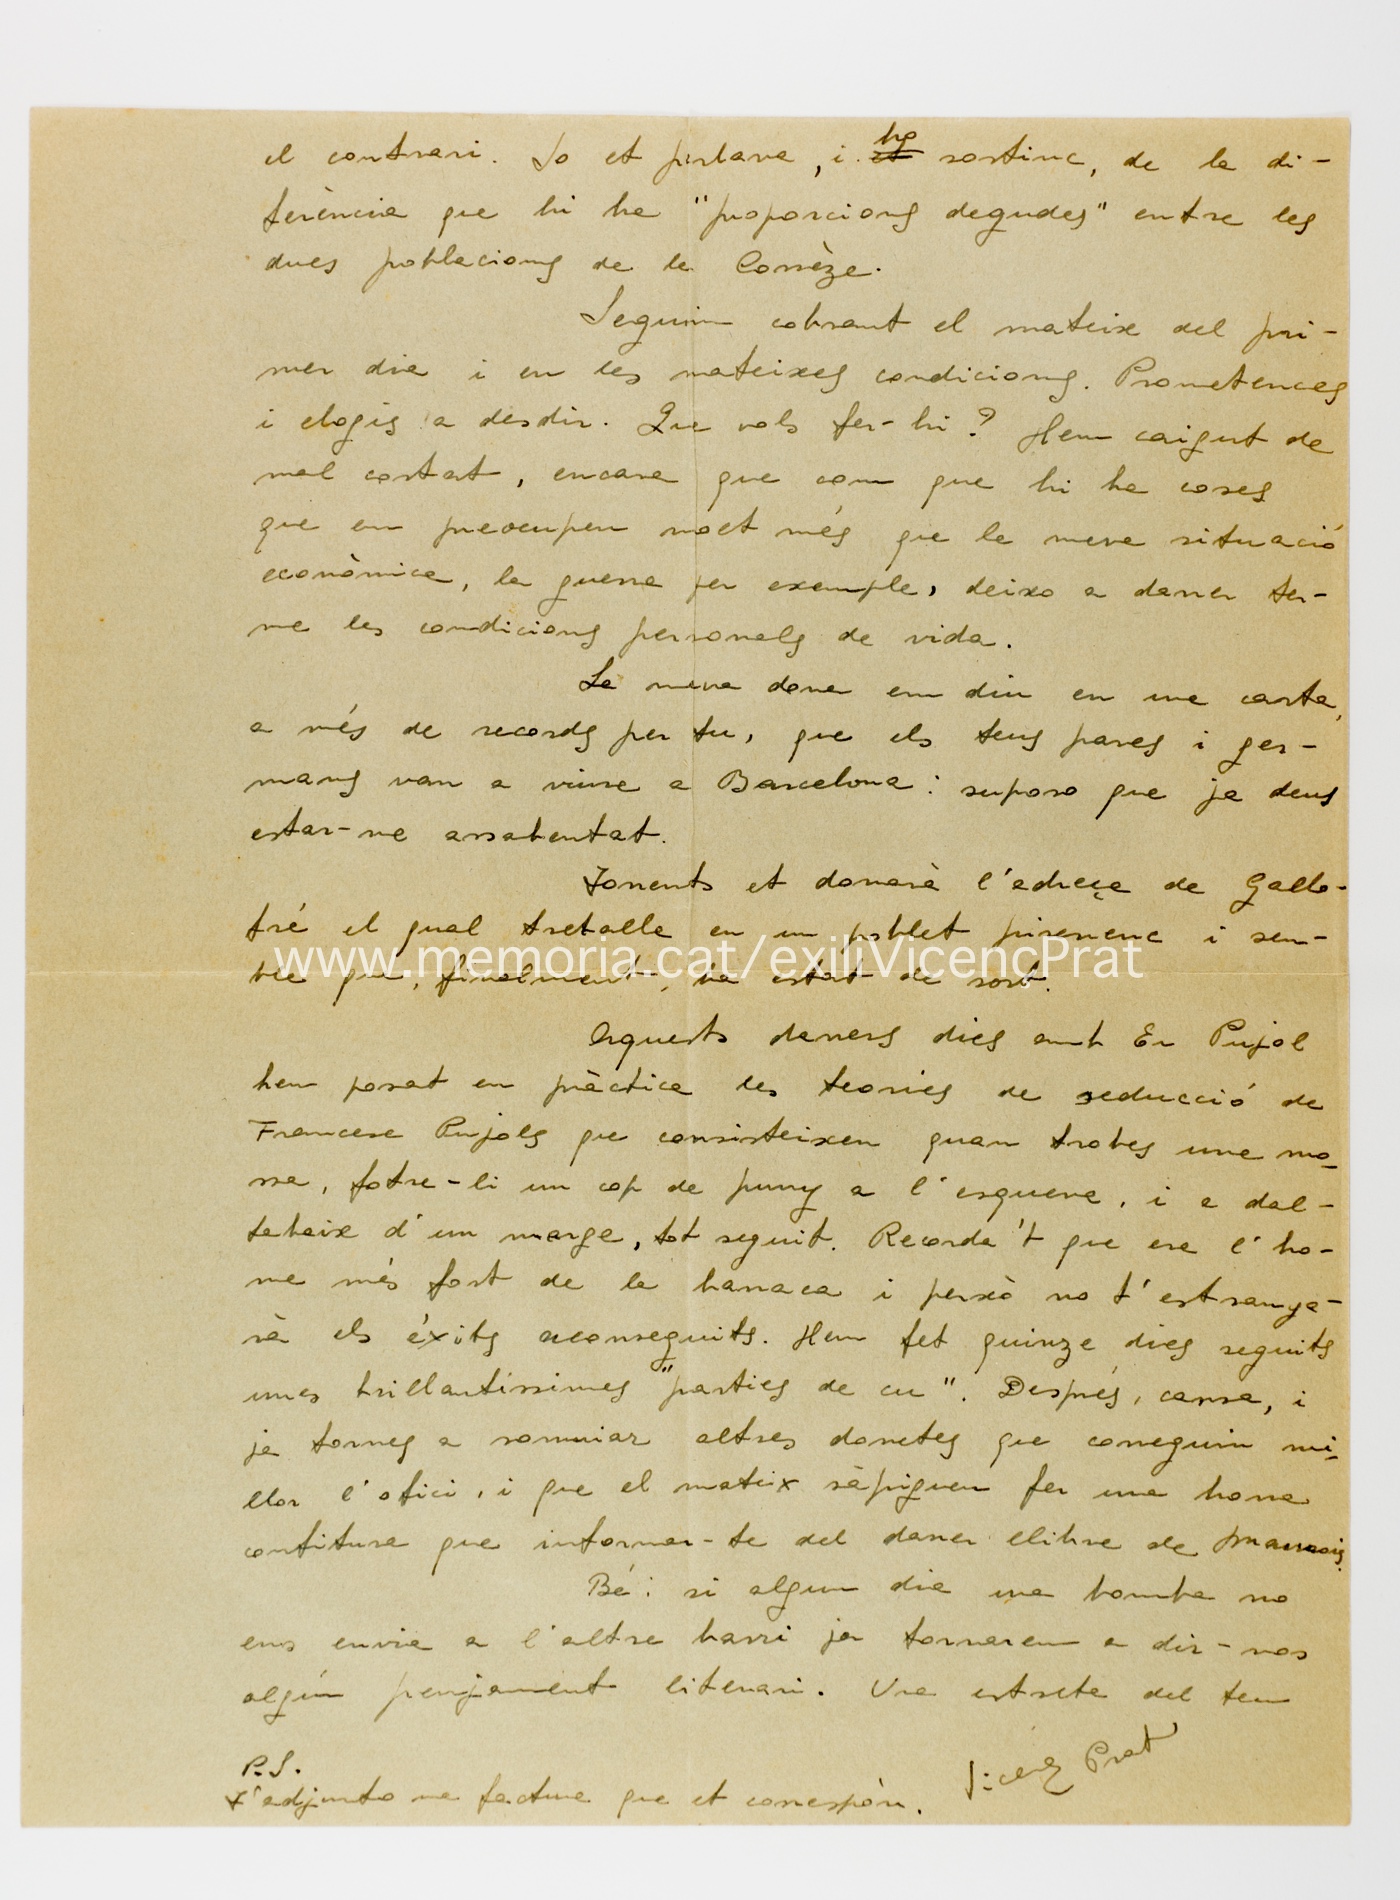 el contrari. Jo et parlava, i ~~et~~ ho sostinc, de la di-
ferència que hi ha "proporcions degudes" entre les
dues poblacions de la Corrèze.
Seguim cobrant el mateix del pri-
mer dia i en les mateixes condicions. Prometences
i elogis a desdir. Que vols fer-hi? Hem caigut de
mal costat, encara que com que hi ha coses
que em preocupen molt més que la meva situació
econòmica, la guerra per exemple, deixo a darrer ter-
me les condicions personals de vida.
La meva dona em diu en una carta,
a més de records per tu, que els teus pares i ger-
mans van a viure a Barcelona: suposo que ja deus
estar-ne assabentat.
Torrents et donarà l'adreça de Gallo-
fré el qual treballa en un poblet pirenenc i sem-
bla que, finalment, ha estat de sort.
www.memoria.cat/exiliVicençPrat
Aquests darrers dies amb En Pujol
hem posat en pràctica les teories de seducció de
Francesc Pujols que consisteixen quan trobes una mo-
ssa, fotre-li un cop de puny a l'esquena, i a dal-
tabaix d'un marge, tot seguit. Recorda't que era l'ho-
me més fort de la barraca i perxò no t'estranya-
rà els éxits aconseguits. Hem fet quinze dies seguits
unes brillantíssimes "parties de cu". Després, cansa, i
ja tornes a somniar altres donetes que coneguin mi-
llor l'ofici, i que el mateix sàpiguen fer una bona
confitura que informar-te del darrer llibre de Maurois.
Bé: si algun dia una bomba no
ens envia a l'altre barri ja tornarem a dir-nos
algún penjament literari. Una estreta del teu
Vicenç Prat
P.S.
T'adjunto na factura que et correspòn.